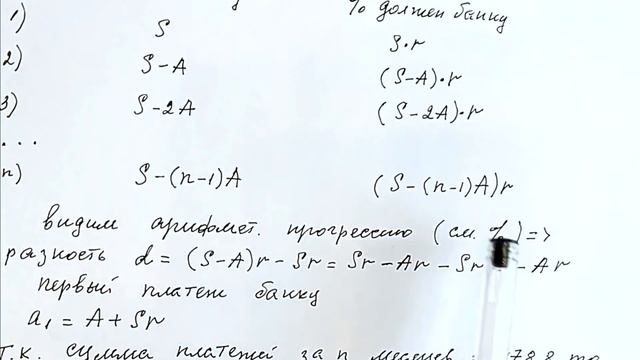 % должен банку
1) S S·r
2) S-A (S-A)·r
3) S-2A (S-2A)·r
...
n) S-(n-1)A (S-(n-1)A)r
видим арифмет. прогрессию (см. %) =>
разность d = (S-A)r - Sr = Sr - Ar - Sr - Ar
первый платеж банку
a₁ = A + Sr
Т.К. сумма платежей за n 788